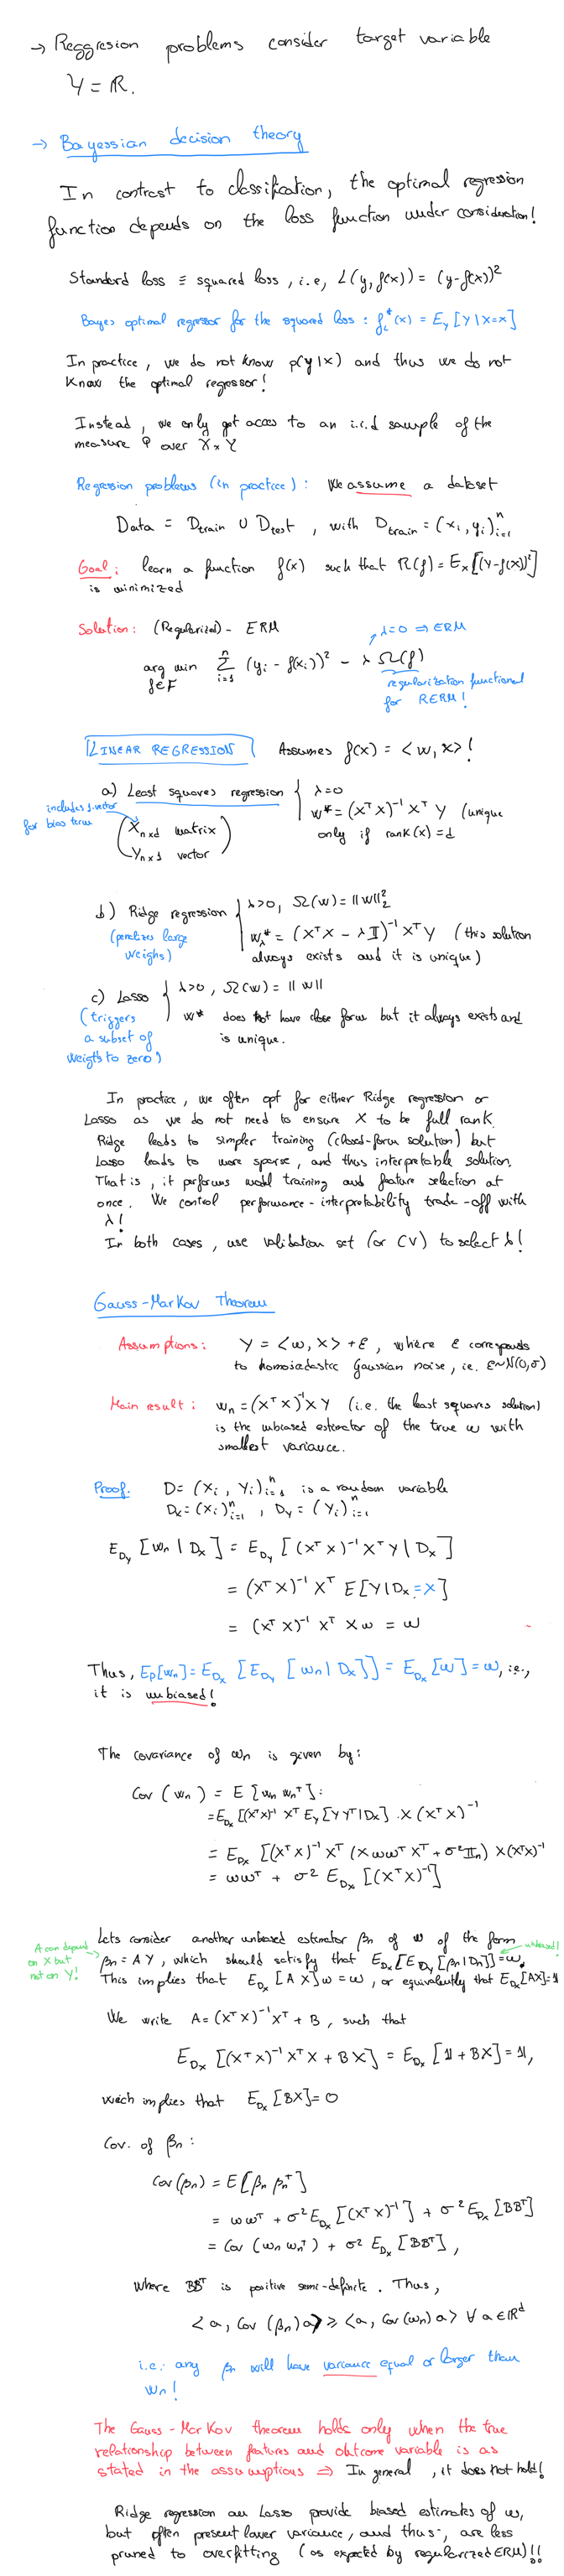 → Reggresion problems consider target variable
Y = ℝ.
→ Bayessian decision theory
In contrast to classification, the optimal regression
function depends on the loss function under consideration!
Standard loss ≡ squared loss, i.e, L(y, f(x)) = (y-f(x))²
Bayes optimal regressor for the squared loss : f*_L(x) = E_Y[Y|X=x]
In practice, we do not know p(y|x) and thus we do not
know the optimal regressor!
Instead, we only get acces to an i.i.d sample of the
measure P over X×Y
Regression problems (in practice) : We assume a dataset
Data = D_train ∪ D_test, with D_train = (x_i, y_i)_{i=1}^n
Goal : learn a function f(x) such that R(f) = E_X[(y-f(x))²]
is minimized
Solution : (Regularized) - ERM
λ=0 ⇒ ERM
arg min_{f∈F} Σ_{i=1}^n (y_i - f(x_i))² - λ Ω(f)
regularization functional
for RERM!
LINEAR REGRESSION Assumes f(x) = <w, x> !
a) Least squares regression { λ=0
w* = (XᵀX)⁻¹ Xᵀ Y (unique
only if rank(x) = d
includes 1-vector
for bias term
(X_{n×d} matrix
Y_{n×1} vector)
b) Ridge regression { λ>0, Ω(w) = ||w||²₂
(penalizes large
weighs)
w*_λ = (XᵀX - λ𝕀)⁻¹ XᵀY (this solution
always exists and it is unique)
c) Lasso { λ>0, Ω(w) = ||w||
(triggers
a subset of
weigths to zero)
w* does not have close form but it always exists and
is unique.
In practice, we often opt for either Ridge regression or
Lasso as we do not need to ensure X to be full rank.
Ridge leads to simpler training (closed-form solution) but
Lasso leads to more sparse, and thus interpretable solution.
That is, it performs model training and feature selection at
once. We control performance - interpretability trade-off with
λ!
In both cases, use validation set (or CV) to select λ!
Gauss-Markov Theorem
Assumptions : Y = <w, X> + ε, where ε corresponds
to homoscedastic Gaussian noise, i.e. ε~N(0,σ)
Main result : w_n = (XᵀX)⁻¹XY (i.e. the least squares solution)
is the unbiased estimator of the true w with
smallest variance.
Proof. D = (X_i, Y_i)_{i=1}^n is a random variable
D_X = (X_i)_{i=1}^n, D_Y = (Y_i)_{i=1}^n
E_{D_Y}[w_n | D_X] = E_{D_Y}[(XᵀX)⁻¹ XᵀY | D_X]
= (XᵀX)⁻¹ Xᵀ E[Y|D_X = X]
= (XᵀX)⁻¹ Xᵀ X w = w
Thus, E_D[w_n] = E_{D_X}[E_{D_Y}[w_n | D_X]] = E_{D_X}[w] = w, i.e.,
it is unbiased!
The covariance of w_n is given by:
Cov(w_n) = E[w_n w_nᵀ] :
= E_{D_X}[(XᵀX)⁻¹ Xᵀ E_Y[YYᵀ|D_X] . X (XᵀX)⁻¹
= E_{D_X}[(XᵀX)⁻¹ Xᵀ (X w wᵀ Xᵀ + σ² 𝕀_n) X(XᵀX)⁻¹
= w wᵀ + σ² E_{D_X}[(XᵀX)⁻¹]
Lets consider another unbiased estimator β_n of w of the form
A can depend
on X but
not on Y!
unbiased!
β_n = A Y, which should satisfy that E_{D_X}[E_{D_Y}[β_n|D_n]] = w.
This implies that E_{D_X}[A X] w = w, or equivalently that E_{D_X}[AX] = 𝟙
We write A = (XᵀX)⁻¹Xᵀ + B, such that
E_{D_X}[(XᵀX)⁻¹XᵀX + BX] = E_{D_X}[𝟙 + BX] = 𝟙,
wich implies that E_{D_X}[BX] = 0
Cov. of β_n :
Cov(β_n) = E[β_n β_nᵀ]
= w wᵀ + σ² E_{D_X}[(XᵀX)⁻¹] + σ² E_{D_X}[BBᵀ]
= Cov(w_n w_nᵀ) + σ² E_{D_X}[BBᵀ],
where BBᵀ is positive semi-definite. Thus,
<a, Cov(β_n) a> ≥ <a, Cov(w_n) a> ∀ a ∈ ℝᵈ
i.e.: any β_n will have variance equal or larger than
w_n!
The Gauss-Markov theorem holds only when the true
relationship between features and outcome variable is as
stated in the assumptions ⇒ In general, it does not hold!
Ridge regression an Lasso provide biased estimates of w,
but often present lower variance, and thus, are less
pruned to overfitting (as expected by regularized ERM)!!